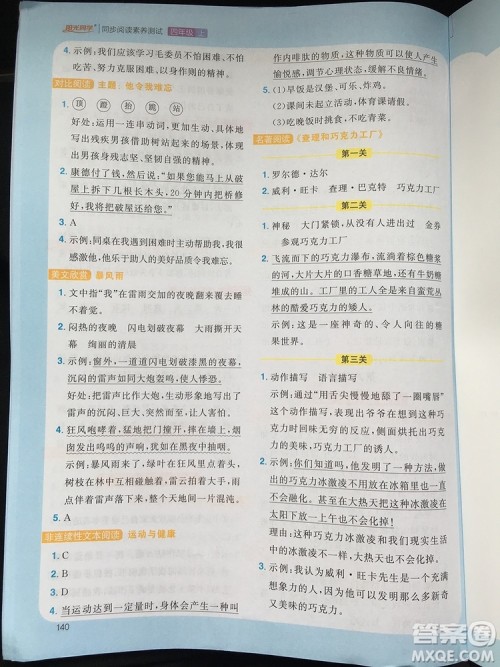 阳光同学 同步阅读素养测试 四年级 上
4. 示例：我们应该学习毛委员不怕困难、不怕吃
苦、努力克服困难、以身作则的精神。
对比阅读 主题：他令我难忘
1. 顶 蹬 抬 跳 站
好处：运用一连串动词，更加具体、生动地描
写出残疾男孩借助树站起来的场景，表现出
男孩身残志坚、坚强不屈的品质。
2. 康德付了钱，好奇地问：“如果您能马上从破
屋上拆下几根长木头，20分钟内把桥修好，
我就把破屋还给您。”
3. A
4. 示例：同桌在我遇到困难时主动帮助我，我很
感激他。他乐于助人的美好品质令我难忘。
美文欣赏 暴风雨
1. 文中指“我”在雷雨交加的夜晚翻来覆去睡
不着觉。
2. 闷热的夜晚 闪电划破夜幕 大雨撕开天
幕 绚丽的清晨
3. 示例：窗外，一道道闪电划破漆黑的夜幕，
沉闷的雷声如同大炮轰鸣，使人悸恐。
好处：把雷声比作大炮轰鸣，形象生动地写出
了雷声的沉闷和响亮。
4. 狂风咆哮着，猛地把门撞开，摔在墙上。烟
囱发出呜呜的声响，犹如在黑夜中抽咽。
示例：暴风雨来了，绿叶在树枝上沙沙作响，
树枝在林中翩翩起舞，大树在地面摇摇晃晃。
雨点伴着雷声落下来，整个天地间一片混沌。
5. A
非连续性文本阅读 运动与健康
1. C
2. B
3. D
4. 当运动达到一定量时，身体会产生一
作内啡肽的物质，它可以帮助人们产生愉
愉悦感，消除压力和不快，缓解焦虑与抑郁。
5. (1)早上早起锻炼，跑步。
(2)课间主动下座位活动。
(3)吃晚饭时挑食，不吃青菜。
名著阅读 《查理和巧克力工厂》
第一关
1. 罗尔德·达尔
2. 威利·旺卡 查理·巴克特 巧克力工厂
第二关
1. 神秘 大门紧锁，从没人进去或出来 金券
参观巧克力工厂
2. 飞流而下的巧克力瀑布，流淌着棕色糖浆
的河流，遍地的口香糖草地，还有用牛奶软糖
堆成的山。工厂里的工人全是来自蛮荒丛
林的酷爱巧克力的小矮人。
示例：这是一座神奇的、令人向往的巧
克力糖果世界。
第三关
1. 动作描写 语言描写
示例：通过“用舌尖慢慢地舔了一圈嘴唇”
的动作，写出了乔爷爷在想到那些巧克力时
无比向往的生动反应，侧面烘托出巧克力的
美味，表现出巧克力工厂的诱人。
2. 示例：你们知道吗，他甚至还发明了一种
方法能使巧克力冰激凌不放在冰箱里也一直
不会融化呢，甚至在大热天把冰激凌放在
太阳下放一上午也不会化掉！
理由：因为我们现实生活中的冰激凌都会融
化，而这种冰激凌在大热天也不会融化，和我
们平时吃的冰激凌有很大的不同，我觉得很
新奇。
3. 示例：威利·旺卡先生能发明出很多新奇
又美味的巧克力。
140
答案圈
MXQE.COM